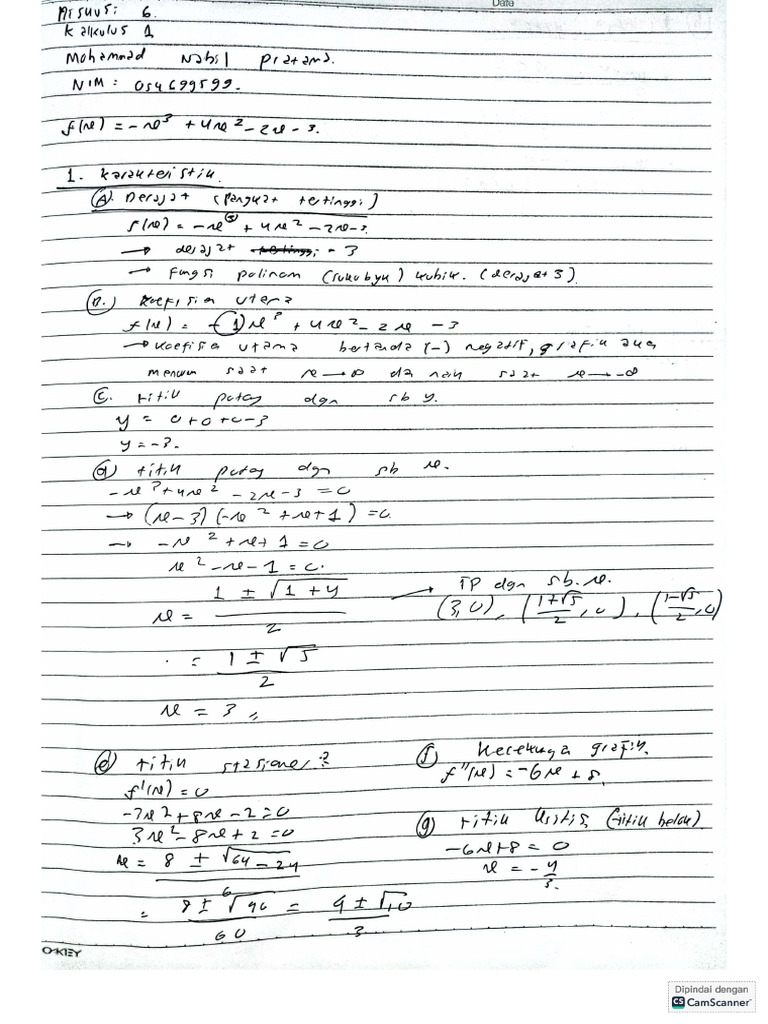 Data
Diskusi 6.
Kalkulus 1
Mohammad Nabil Pratama.
NIM : 054699599.
f(x) = -x³ + 4x² - 2x - 3.
1. Karakteristik.
(A). Derajat (pangkat tertinggi)
f(x) = -x³ + 4x² - 2x - 3.
→ derajat = 3
→ Fungsi polinom (sukubyk) kubik. (derajat 3).
(B.) Koefisien utama
f(x) = (-1)x³ + 4x² - 2x - 3
→ Koefisien utama bertanda (-) negatif, grafik akan
menurun saat x → ∞ da naik saat x → -∞
(C). titik potong dgn sb y.
y = 0+0+0-3
y = -3.
(d) titik potong dgn sb x.
-x³ + 4x² - 2x - 3 = 0
→ (x-3)(-x² + x + 1) = 0.
→ -x² + x + 1 = 0
x² - x - 1 = 0.
x = (1 ± √(1+4))/2
→ TP dgn sb. x.
(3,0), ((1+√5)/2, 0), ((1-√5)/2, 0)
= (1 ± √5)/2
x = 3 ,,
(e) titik stasioner ?
f'(x) = 0
-3x² + 8x - 2 = 0
3x² - 8x + 2 = 0
x = (8 ± √(64 - 24))/6
= (8 ± √40)/60 = (4 ± √10)/3
(f) Kecekunga grafik.
f''(x) = -6x + 8.
(g) titik kritis (titik belok)
-6x + 8 = 0
x = -4/3.
OKEY
Dipindai dengan
CS CamScanner